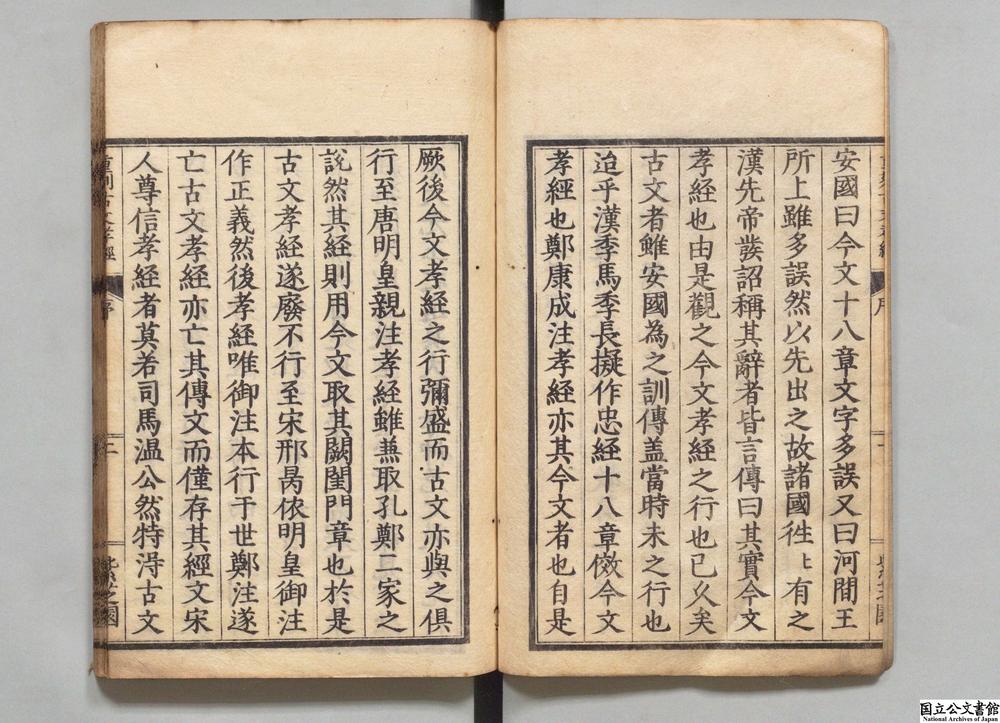 安國曰今文十八章文字多誤又曰河間王
所上雖多誤然以先出之故諸國徃〻有之
漢先帝發詔稱其辭者皆言傳曰其實今文
孝經也由是觀之今文孝經之行也已久矣
古文者雖安國為之訓傳盖當時未之行也
迨乎漢季馬季長擬作忠經十八章傚今文
孝經也鄭康成注孝經亦其今文者也自是
厥後今文孝經之行彌盛而古文亦與之俱
行至唐明皇親注孝經雖兼取孔鄭二家之
說然其經則用今文取其闕閨門章也於是
古文孝經遂廢不行至宋邢昺依明皇御注
作正義然後孝經唯御注本行于世鄭注遂
亡古文孝經亦亡其傳文而僅存其經文宋
人尊信孝經者莫若司馬温公然特淂古文
重刻古文孝經
序
二
紫芝園
国立公文書館
National Archives of Japan